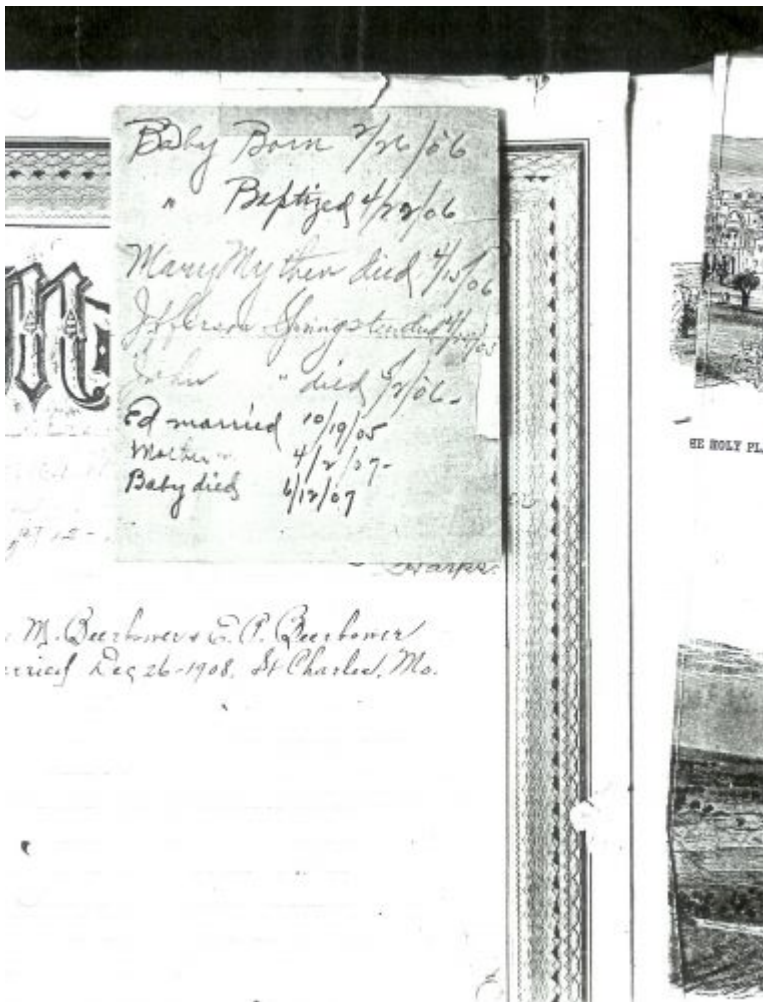 Baby Born 2/26/06
" Baptized 4/22/06
Mary Myther died 4/15/06
Jefferson Springsteen died
John " died 5/2/06-
Ed married 10/19/05
Mother " 4/2/07-
Baby died 6/12/07
M
Harper.
M. Beerbower & E. P. Beerbower
rried Dec 26-1908. St Charles, Mo.
HE HOLY PL